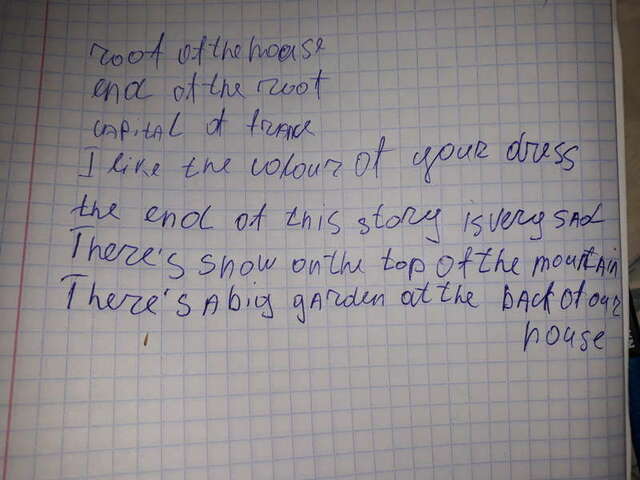 roof of the house
end of the roof
CAPITAL of frANce
I like the colour of your dress
the end of this story is very SAd
There's snow on the top of the mountAin
There's A big gArden at the bAck of our
house